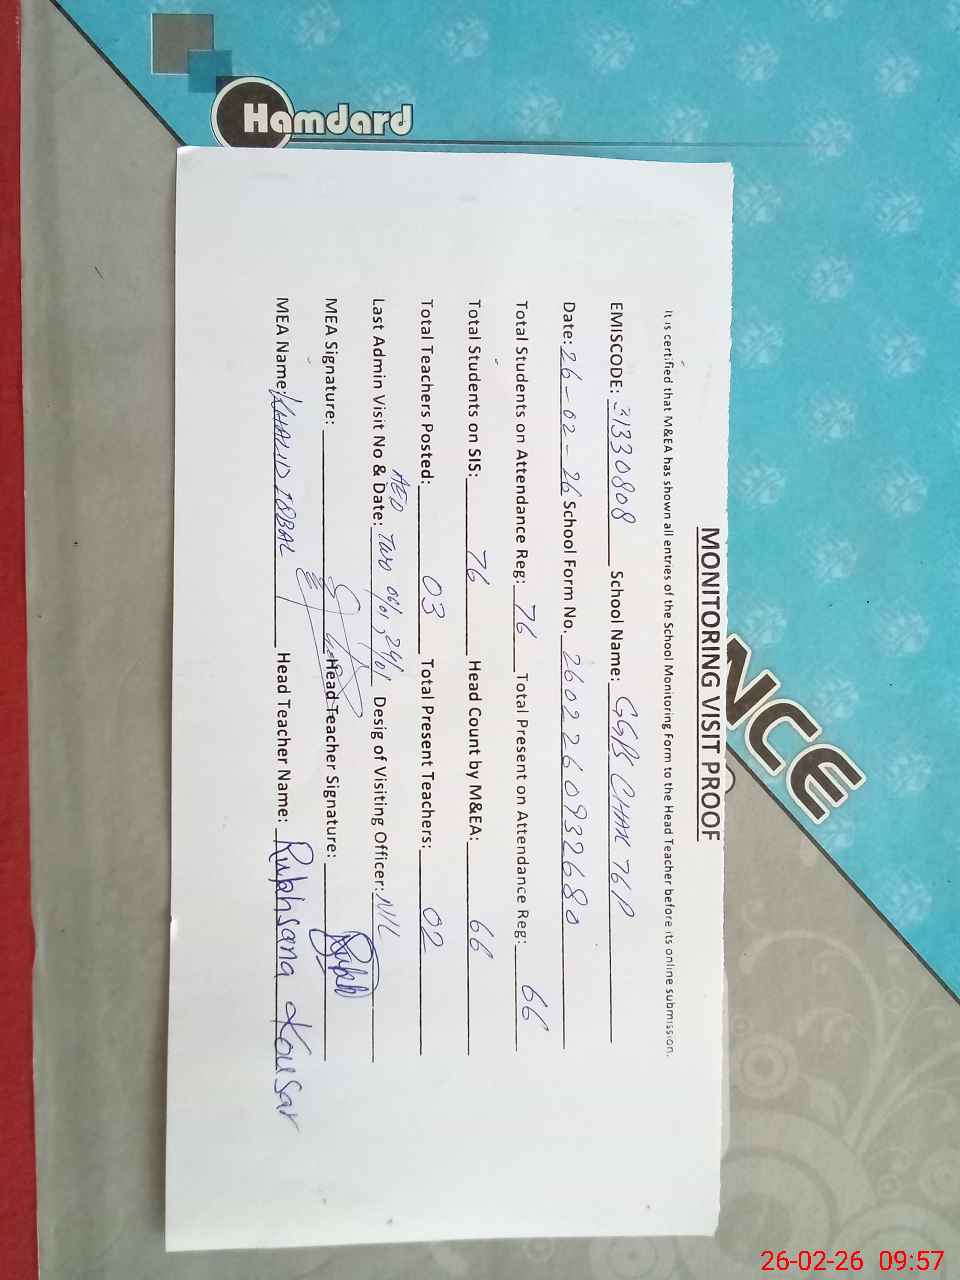 Hamdard
NCE
MONITORING VISIT PROOF
It is certified that M&EA has shown all entries of the School Monitoring Form to the Head Teacher before its online submission.
EMISCODE: 31330808 School Name: GGPS CHAK 76 P
Date: 26-02-26 School Form No. 2602260932680
Total Students on Attendance Reg: 76 Total Present on Attendance Reg: 66
Total Students on SIS: 76 Head Count by M&EA: 66
Total Teachers Posted: 03 Total Present Teachers: 02
AEO
Last Admin Visit No & Date: Two 06/01, 29/01 Desig of Visiting Officer: NIL
MEA Signature: Head Teacher Signature:
MEA Name: KHALID IQBAL Head Teacher Name: Rukhsana Kousar
26-02-26 09:57